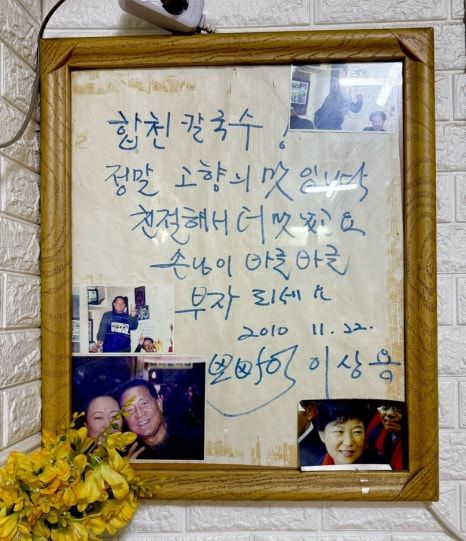 합천 칼국수!
정말 고향의 맛 입니다
친절해서 더 맛있고요
손님이 바글바글
부자 되세요
2010 11. 22.
뽀빠이 이상용